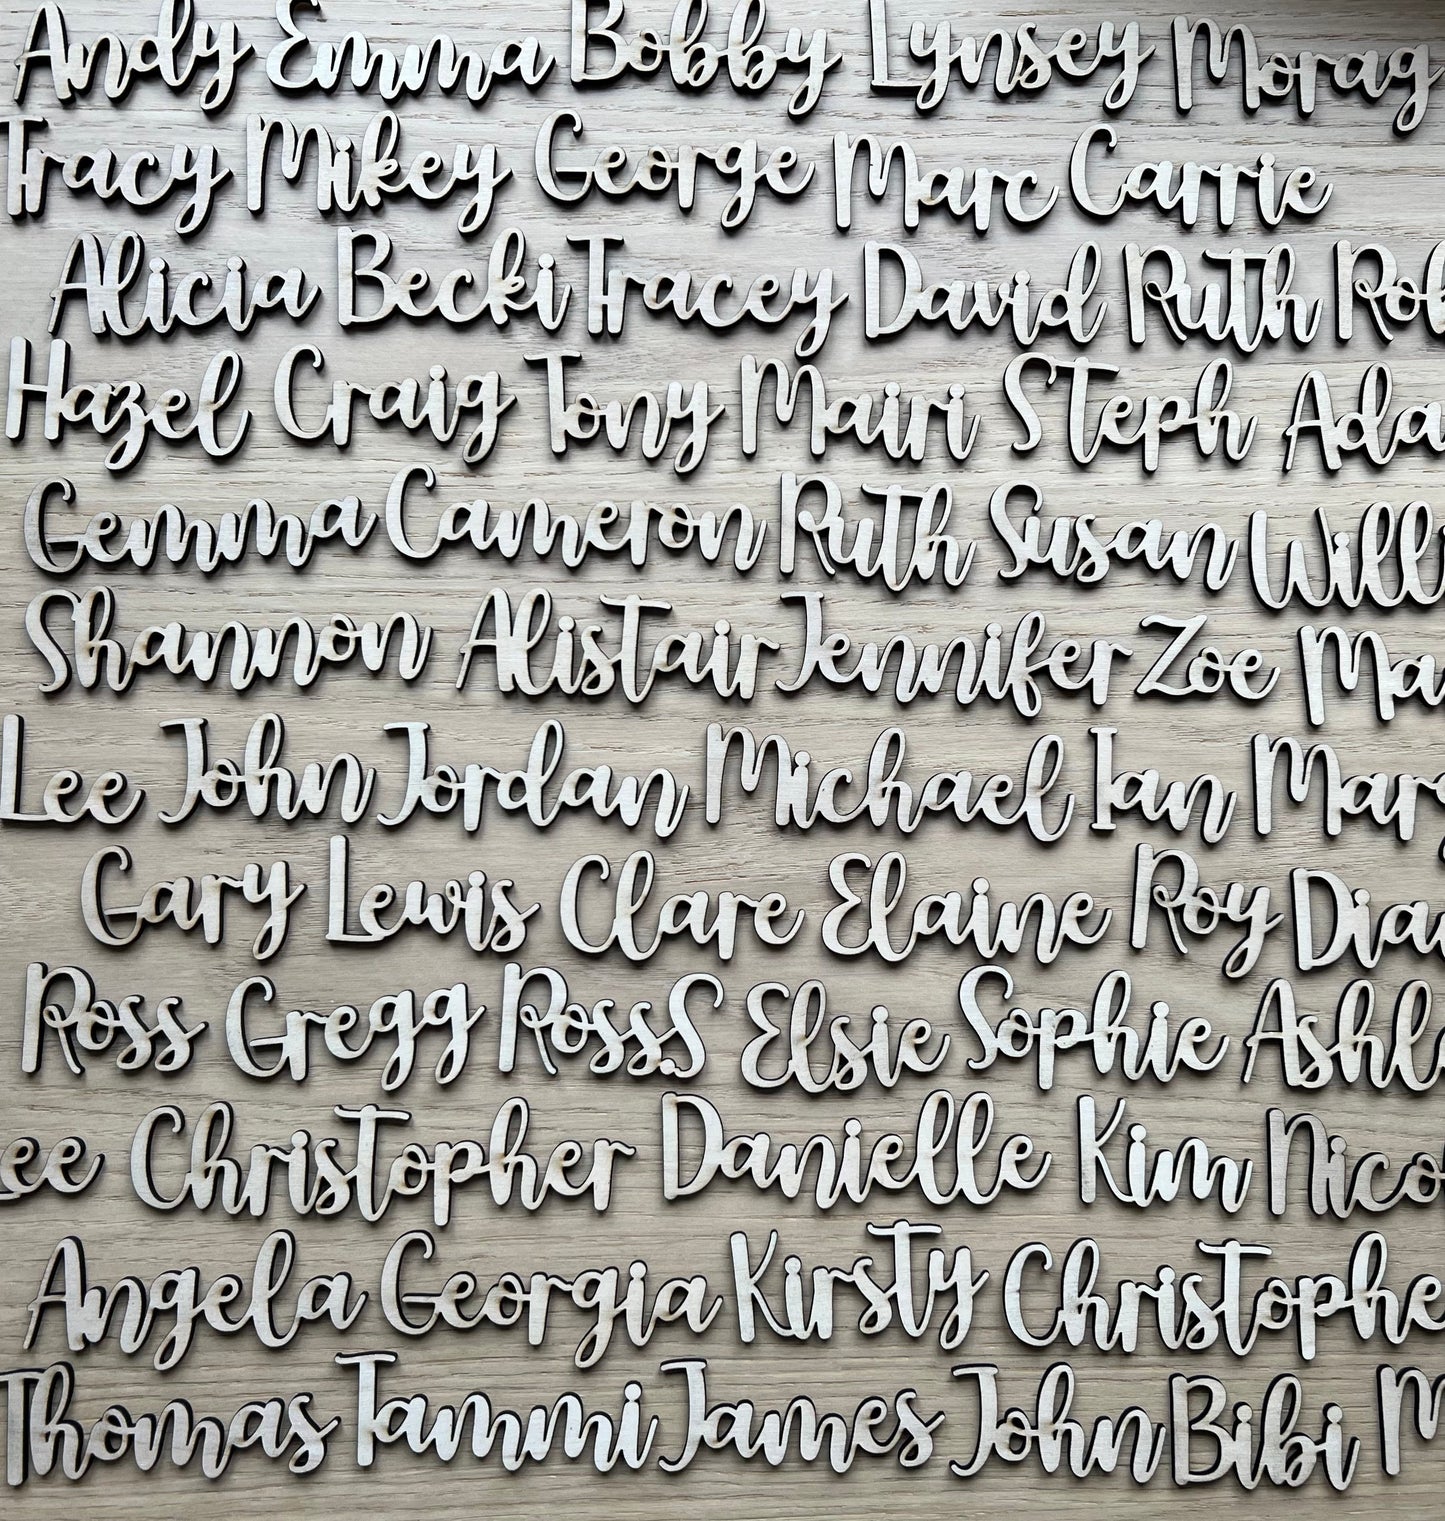 Andy Emma Bobby Lynsey Morag
Tracy Mikey George Marc Carrie
Alicia Becki Tracey David Ruth Rob
Hazel Craig Tony Mairi Steph Ada
Gemma Cameron Ruth Susan Will
Shannon Alistair Jennifer Zoe Ma
Lee John Jordan Michael Ian Marg
Gary Lewis Clare Elaine Roy Dia
Ross Gregg Ross.S Elsie Sophie Ashl
ee Christopher Danielle Kim Nico
Angela Georgia Kirsty Christophe
Thomas Tammi James John Bibi M